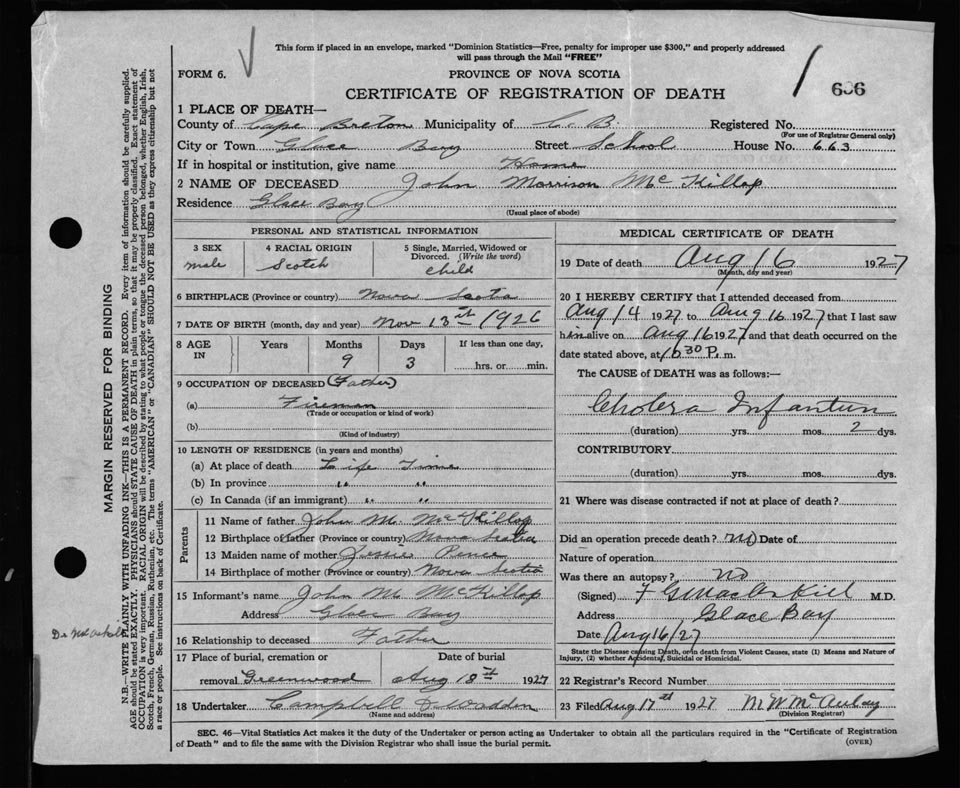 This form if placed in an envelope, marked "Dominion Statistics—Free, penalty for improper use $300," and properly addressed
will pass through the Mail "FREE"
FORM 6.
PROVINCE OF NOVA SCOTIA
CERTIFICATE OF REGISTRATION OF DEATH
606
1 PLACE OF DEATH—
County of Cape Breton Municipality of C. B. Registered No.
(For use of Registrar General only)
City or Town Glace Bay Street School House No. 663
If in hospital or institution, give name Home
2 NAME OF DECEASED John Morrison McKillop
Residence Glace Bay
(Usual place of abode)
PERSONAL AND STATISTICAL INFORMATION
3 SEX 4 RACIAL ORIGIN 5 Single, Married, Widowed or
Divorced. (Write the word)
male Scotch child
6 BIRTHPLACE (Province or country) Nova Scotia
7 DATE OF BIRTH (month, day and year) Nov 13th 1926
8 AGE IN Years Months Days If less than one day,
9 3 hrs. or min.
9 OCCUPATION OF DECEASED (Father)
(a) Fireman
(Trade or occupation or kind of work)
(b)
(Kind of industry)
10 LENGTH OF RESIDENCE (in years and months)
(a) At place of death Life Time
(b) In province " "
(c) In Canada (if an immigrant) " "
Parents
11 Name of father John M. McKillop
12 Birthplace of father (Province or country) Nova Scotia
13 Maiden name of mother Jessie
14 Birthplace of mother (Province or country) Nova Scotia
15 Informant's name John M. McKillop
Address Glace Bay
16 Relationship to deceased Father
17 Place of burial, cremation or Date of burial
removal Greenwood Aug 18th 1927
18 Undertaker Campbell & Wadden
(Name and address)
MEDICAL CERTIFICATE OF DEATH
19 Date of death Aug 16 1927
(Month, day and year)
20 I HEREBY CERTIFY that I attended deceased from
Aug 14 1927 to Aug 16 1927 that I last saw
him alive on Aug 16 1927 and that death occurred on the
date stated above, at 10.30 P. m.
The CAUSE of DEATH was as follows:—
Cholera Infantum
(duration) yrs. mos. 2 dys.
CONTRIBUTORY
(duration) yrs. mos. dys.
21 Where was disease contracted if not at place of death?
Did an operation precede death? no Date of
Nature of operation
Was there an autopsy? no
(Signed) F G MacAskill M.D.
Address Glace Bay
Date Aug 16/27
State the Disease causing Death, or in death from Violent Causes, state (1) Means and Nature of
Injury, (2) whether Accidental, Suicidal or Homicidal.
22 Registrar's Record Number
23 Filed Aug 17th 1927 M W McAulay
(Division Registrar)
SEC. 46—Vital Statistics Act makes it the duty of the Undertaker or person acting as Undertaker to obtain all the particulars required in the "Certificate of Registration
of Death" and to file the same with the Division Registrar who shall issue the burial permit.
(OVER)
MARGIN RESERVED FOR BINDING
N.B.—WRITE PLAINLY WITH UNFADING INK—THIS IS A PERMANENT RECORD. Every item of information should be carefully supplied.
AGE should be stated EXACTLY. PHYSICIANS should STATE CAUSE OF DEATH in plain terms, so that it may be properly classified. Exact statement of
OCCUPATION is very important. RACIAL ORIGIN will be described by stating to what people or tongue the deceased person belonged, whether English, Irish,
Scotch, French, German, Russian, Ruthenian, etc. The terms "AMERICAN" or "CANADIAN" SHOULD NOT BE USED as they express citizenship but not
a race or people. See instructions on back of Certificate.